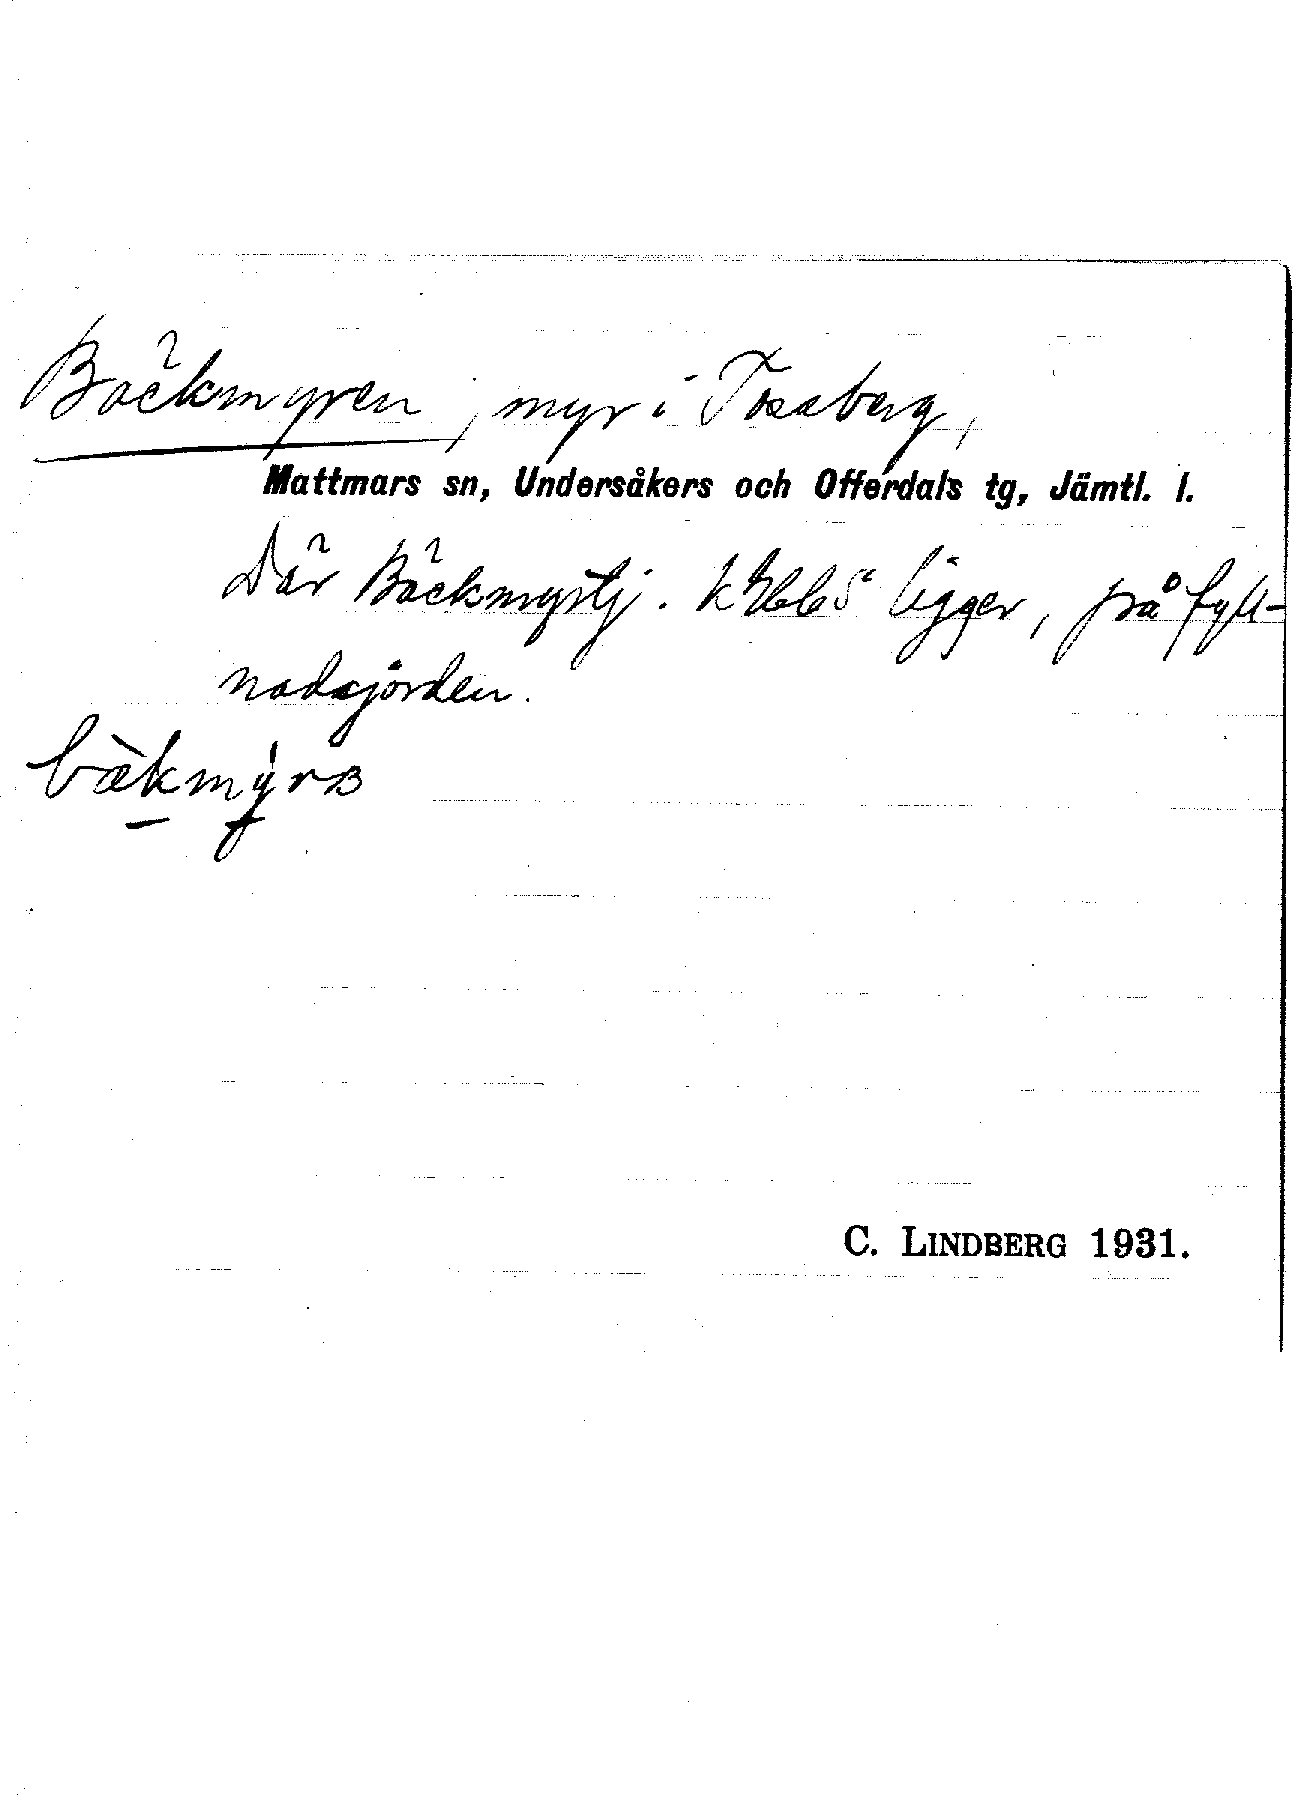 Bäckmyren, myr i Tossberg,
Mattmars sn, Undersåkers och Offerdals tg, Jämtl. l.
Där Bäckmystj. ligger, på fyll-
nadsjorden.
bækmyra
C. LINDBERG 1931.